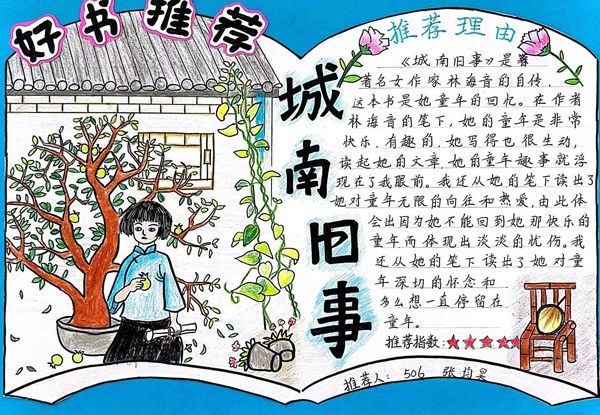 好书推荐
城南旧事
推荐理由
《城南旧事》是
著名女作家林海音的自传,
这本书是她童年的回忆。在作者
林海音的笔下,她的童年是非常
快乐、有趣的,她写得也很生动,
读起她的文章,她的童年趣事就浮
现在了我眼前。我还从她的笔下读出了
她对童年无限的向往和热爱,由此体
会出因为她不能回到她那快乐的
童年而体现出淡淡的忧伤。我
还从她的笔下读出了她对童
年深切的怀念和
多么想一直停留在
童年。
推荐指数:★★★★★
推荐人:506 张均昊